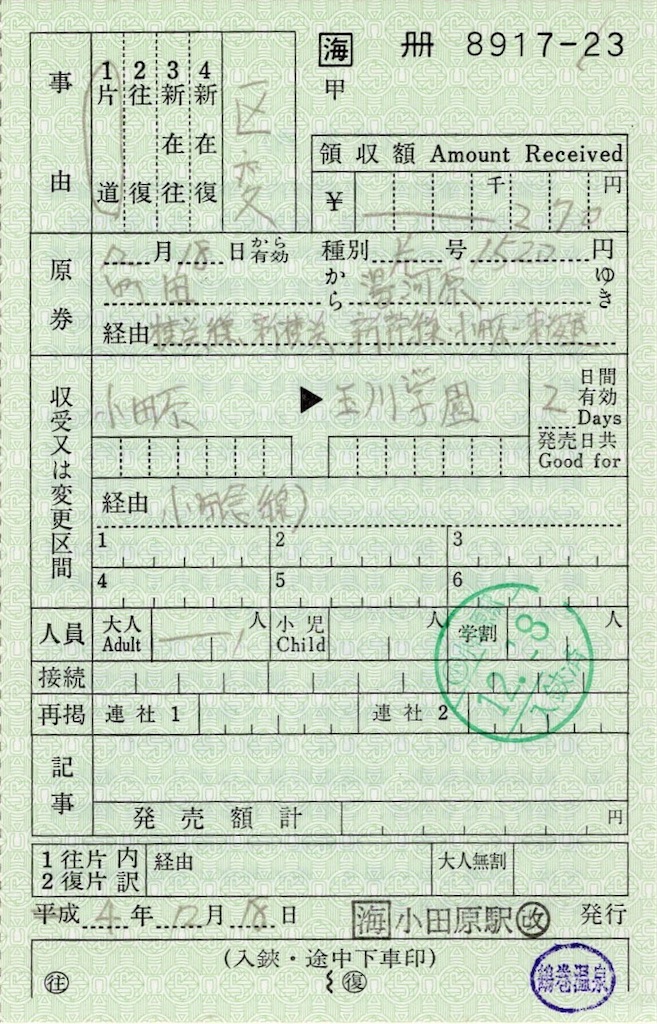 海 冊 8917-23
甲
事由
1 片道
2 往復
3 新在往
4 新在復
区・変
領収額 Amount Received
¥ 千 円
270
原券
12月18日から有効 種別 片 号 1520円
町田 から 湯河原 ゆき
経由 横浜線、新横浜、新幹線、小田原、東海道
収受又は変更区間
小田原 ▶ 玉川学園
2 日間有効 Days
発売日共 Good for
経由 小田急線)
1 2 3
4 5 6
人員 大人 Adult 一 人 小児 Child 人 学割 人
12.-8
入鋏済
接続
再掲 連社1 連社2
記事
発売額計 円
1往片 内 経由 大人無割
2復片 訳
平成 4 年 12 月 18 日 海 小田原駅 改 発行
(入鋏・途中下車印)
往 復
鶴巻温泉